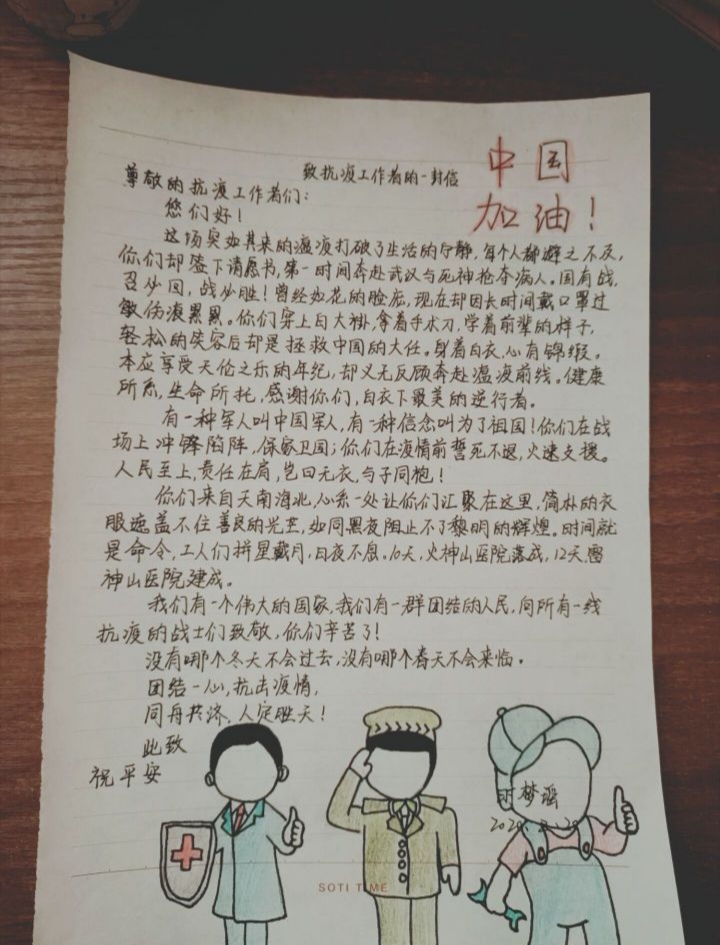 中国
加油！
致抗疫工作者的一封信
尊敬的抗疫工作者们：
您们好！
这场突如其来的瘟疫打破了生活的宁静，每个人都避之不及，
你们却签下请愿书，第一时间奔赴武汉与死神抢夺病人。国有战，
召必回，战必胜！曾经如花的脸庞，现在却因长时间戴口罩过
敏伤痕累累。你们穿上白大褂，拿着手术刀，学着前辈的样子，
轻松的笑容后却是拯救中国的大任。身着白衣，心有锦缎。
本应享受天伦之乐的年纪，却义无反顾奔赴瘟疫前线。健康
所系，生命所托，感谢你们，白衣下最美的逆行者。
有一种军人叫中国军人，有一种信念叫为了祖国！你们在战
场上冲锋陷阵，保家卫国；你们在疫情前誓死不退，火速支援。
人民至上，责任在肩，岂曰无衣，与子同袍！
你们来自天南海北，心系一处让你们汇聚在这里，简朴的衣
服遮盖不住善良的光芒，如同黑夜阻止不了黎明的辉煌。时间就
是命令，工人们拼星戴月，日夜不息。10天，火神山医院落成，12天，雷
神山医院建成。
我们有一个伟大的国家，我们有一群团结的人民，向所有一线
抗疫的战士们致敬，你们辛苦了！
没有哪个冬天不会过去，没有哪个春天不会来临。
团结一心，抗击疫情，
同舟共济，人定胜天！
此致
祝平安
梦瑶
SOTI TIME